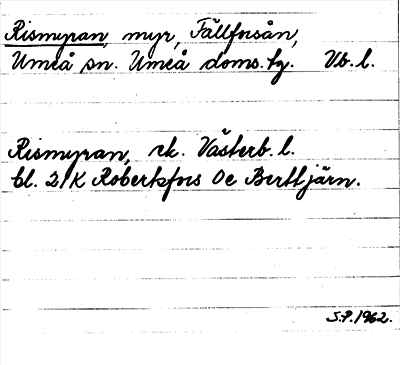 Rismyran, myr, Fällforsån,
Umeå sn. Umeå doms.tg. Vb. l.
Rismyran, rk. Västerb. l.
bl. 21K Robertsfors Oc Berttjärn.
S.P. 1962.